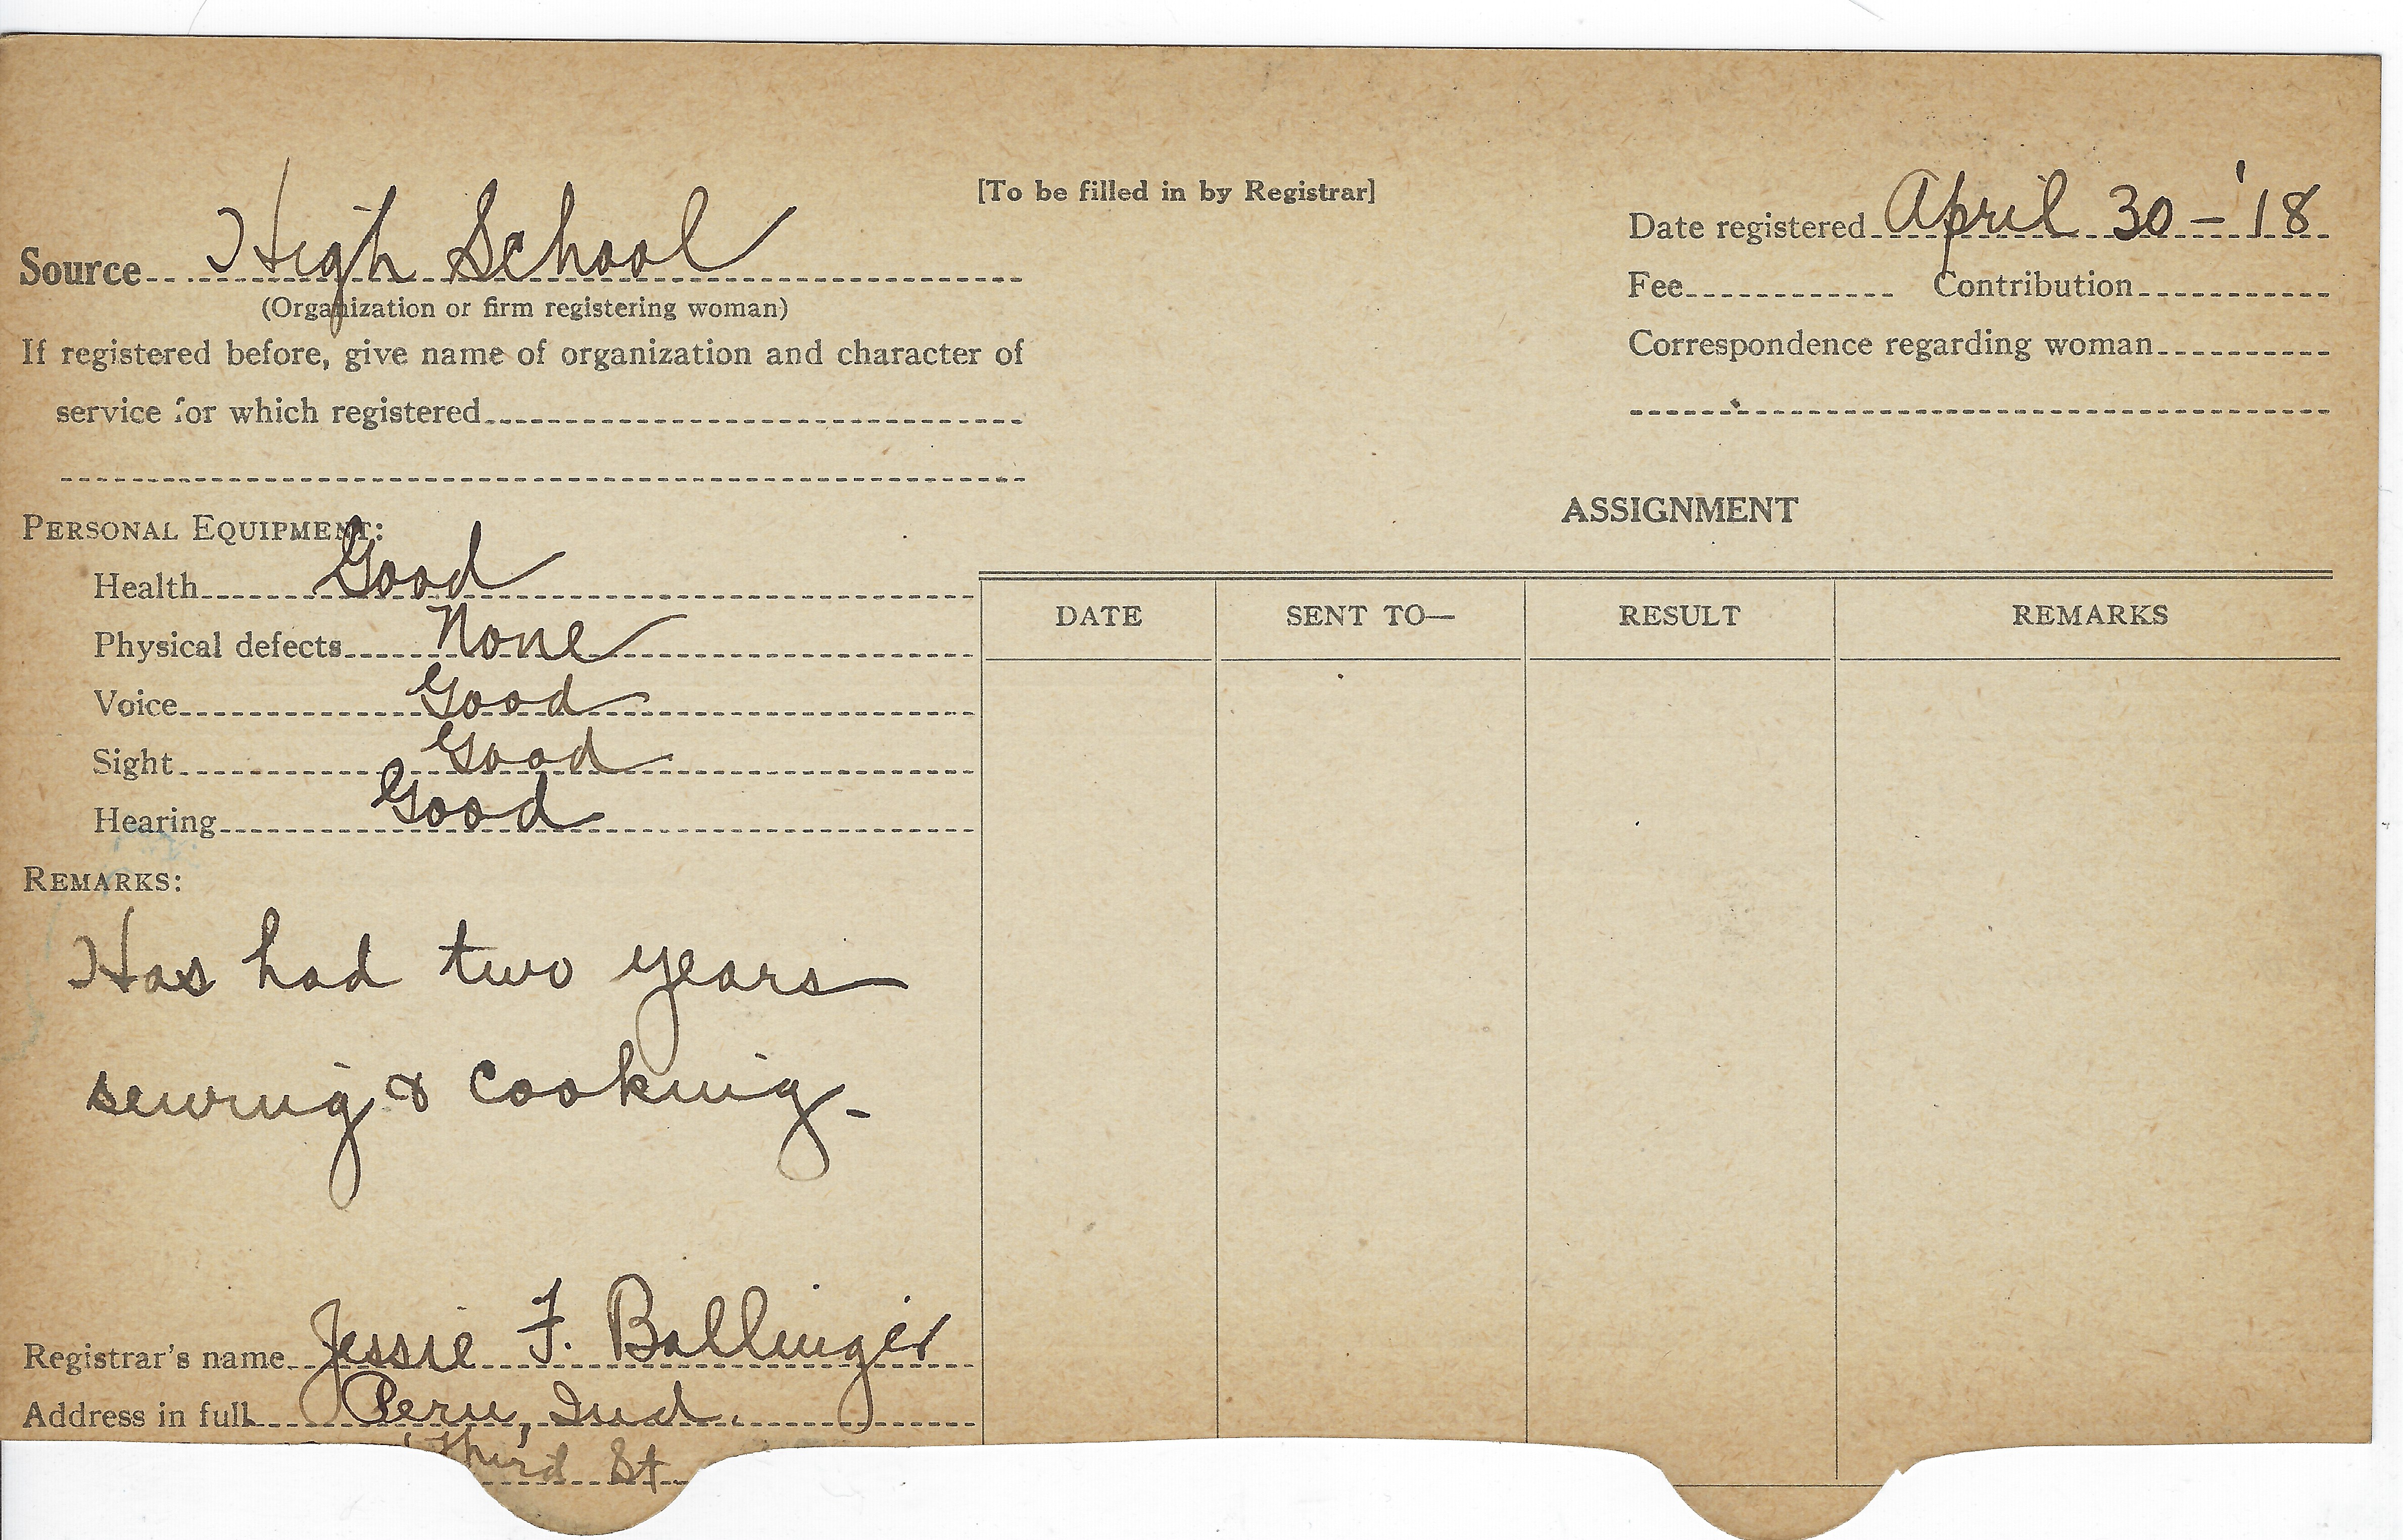 [To be filled in by Registrar]
Source High School
(Organization or firm registering woman)
If registered before, give name of organization and character of
service for which registered
Date registered April 30 - '18
Fee Contribution
Correspondence regarding woman
PERSONAL EQUIPMENT:
Health Good
Physical defects None
Voice Good
Sight Good
Hearing Good
REMARKS:
Has had two years
sewing & cooking -
Registrar's name Jessie F. Ballinger
Address in full Peru, Ind.
Third St
ASSIGNMENT
DATE SENT TO— RESULT REMARKS